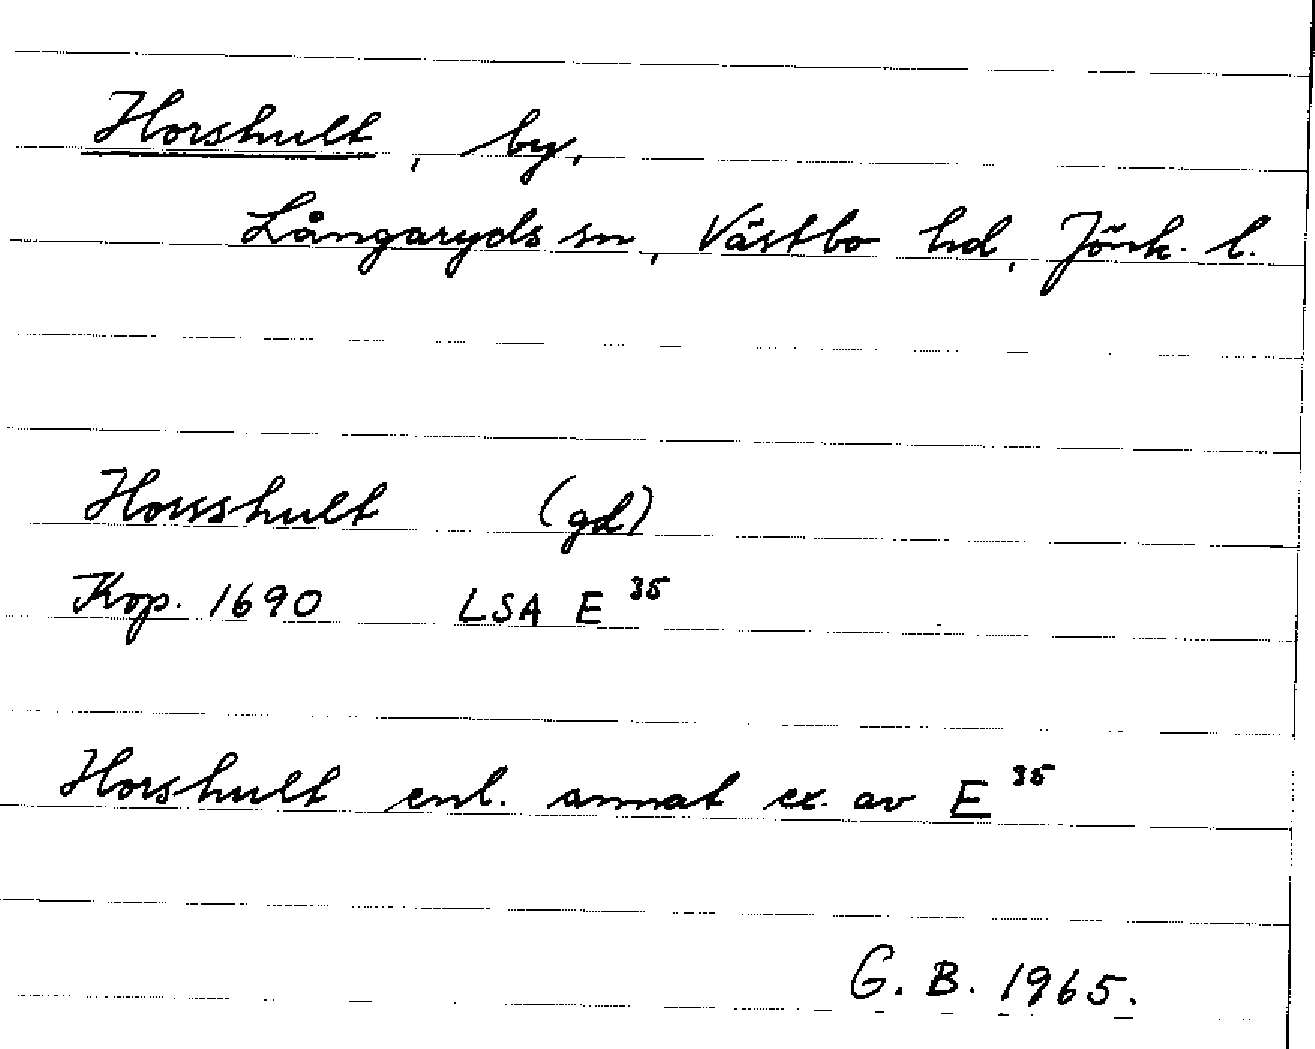 Horshult, by,
Långaryds sn, Västbo hd, Jönk. l.
Horsshult (gd)
Kop. 1690 LSA E 35
Horshult enl. annat ex. av E 35
G. B. 1965.